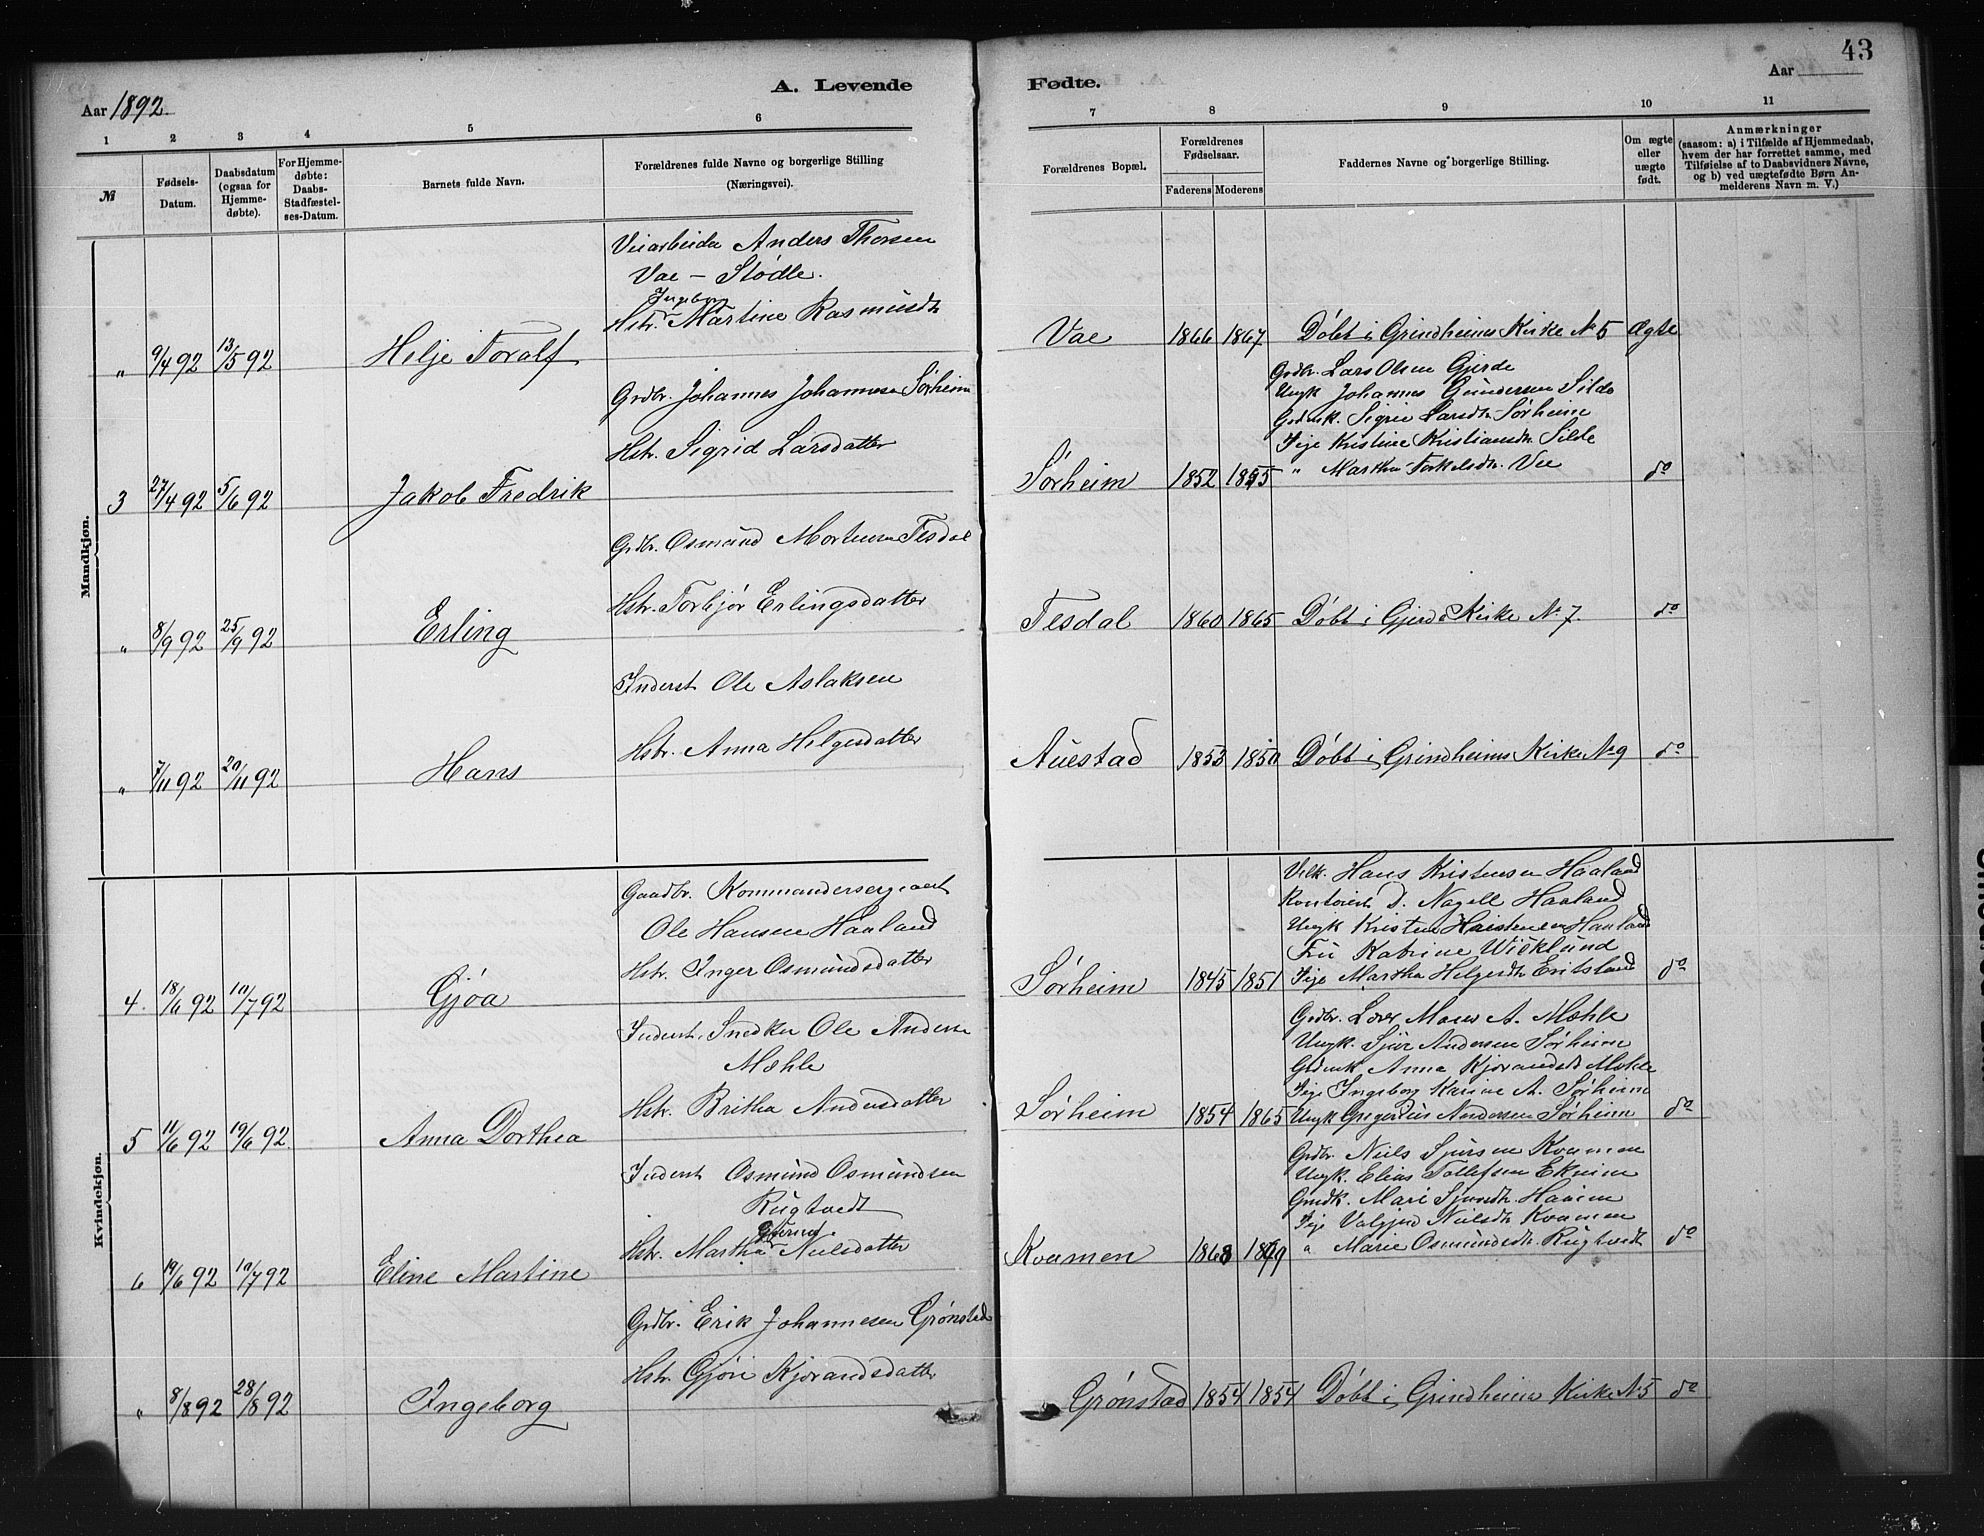 43
A. Levende Fødte.
Aar 1892
Aar
1 2 3 4 5 6 7 8 9 10 11
№
Fødsels-Datum.
Daabsdatum (ogsaa for Hjemme-døbte).
For Hjemme-døbte: Daabs-Stadfæstel-ses-Datum.
Barnets fulde Navn.
Forældrenes fulde Navne og borgerlige Stilling (Næringsvei).
Forældrenes Bopæl.
Forældrenes Fødselsaar.
Faderens Moderens
Faddernes Navne og borgerlige Stilling.
Om ægte eller uægte født.
Anmærkninger
(saasom: a) i Tilfælde af Hjemmedaab, hvem der har forrettet samme, med Tilføielse af to Daabsvidners Navne, og b) ved uægtefødte Børn Anmelderens Navn m. V.)
Mandkjøn.
Veiarbeider Anders Thorsen
Vae – Stødle.
Ingebor
Hstr. Martine Rasmusdtr
" 9/4 92 13/5 92 Helje Toralf
Vae 1866 1867 Døbt i Grindheims Kirke № 5 Ægte
Grdbr. Johannes Johannesen Sørheim
Hstr. Sigrid Larsdatter
3 27/4 92 5/6 92 Jakob Fredrik
Grdbr. Lars Olsen Gjerde
Ungk Johannes Gundersen Silde
Grdmk. Sigrie Larsdtr Sørheim
Pige Kristine Kristiansdtr. Silde
" Martha Torkelsdtr. Vee
Sørheim 1852 1855 do
Grdbr. Osmund Mortensen Tesdal
Hstr. Torbjør Erlingsdatter
" 8/9 92 25/9 92 Erling
Tesdal 1860 1865 Døbt i Gjerde Kirke № 7. do
Inderst Ole Aslaksen
Hstr. Anna Helgesdatter
" 7/11 92 20/11 92 Hans
Auestad 1853 1850 Døbt i Grindheims Kirke № 9 do
Kvindekjøn.
Gaardbr. Kommandersergeant
Ole Hansen Haaland
Hstr. Inger Osmundsdatter
4. 18/6 92 10/7 92 Gjøa
Hans Kristensen Haaland
D. Nagell Haaland
Ungk Kristen Haaland
Fru Katrine Wicklund
Pige Martha Helgesdtr Eritsland
Sørheim 1845 1851 do
Inderst. Snedker Ole Anderse
Mæhle
Hstr. Britha Andersdatter
5 11/6 92 19/6 92. Anna Dorthea
Grdbr. A. Mæhle
Ungk. Sjur Andersen Sørheim
Grdmk Anna Kjørandsdtr Mæhle
Pige Ingeborg Karine A. Sørheim
Ungk Gregorius Andersen Sørheim
Sørheim 1854 1865 do
Inderst Osmund Osmundsen
Rugtvedt
Hstr. Martha Nielsdatter
6 19/6 92 10/7 92 Eline Martine
Grdbr. Niels Sjursen Kvamen
Ungk. Elias Tollefsen Ekreim
Grmdk. Mari Sjursdtr. Hauen
Pige Valgjer Nielsdtr Kvamen
" Marie Osmundsdtr. Rugtvedt
Kvamen 1868 1869 do
Grdbr. Erik Johannesen Grønstad
Hstr. Gjøri Kjørandsdatter
" 8/8 92 28/8 92 Ingeborg
Grønstad 1854 1854 Døbt i Grindheims Kirke № 5 do